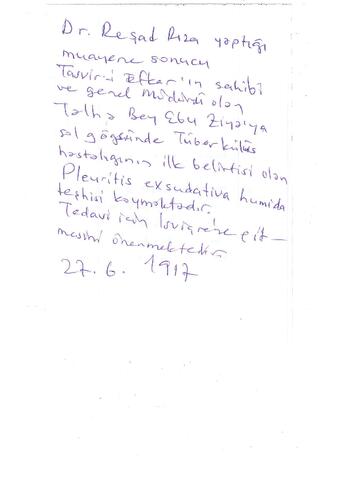 Dr. Reşad Rıza yaptığı
muayene sonucu
Tasvir-i Efkar'ın sahibi
ve genel Müdürü olan
Talha Bey Ebu Ziya'ya
sol göğsünde Tüberküløs
hastalığının ilk belirtisi olan
Pleuritis exsudativa humida
teşhisi koymaktadır.
Tedavi için İsviçre'ye git-
mesini önermektedir.
27.6. 1917